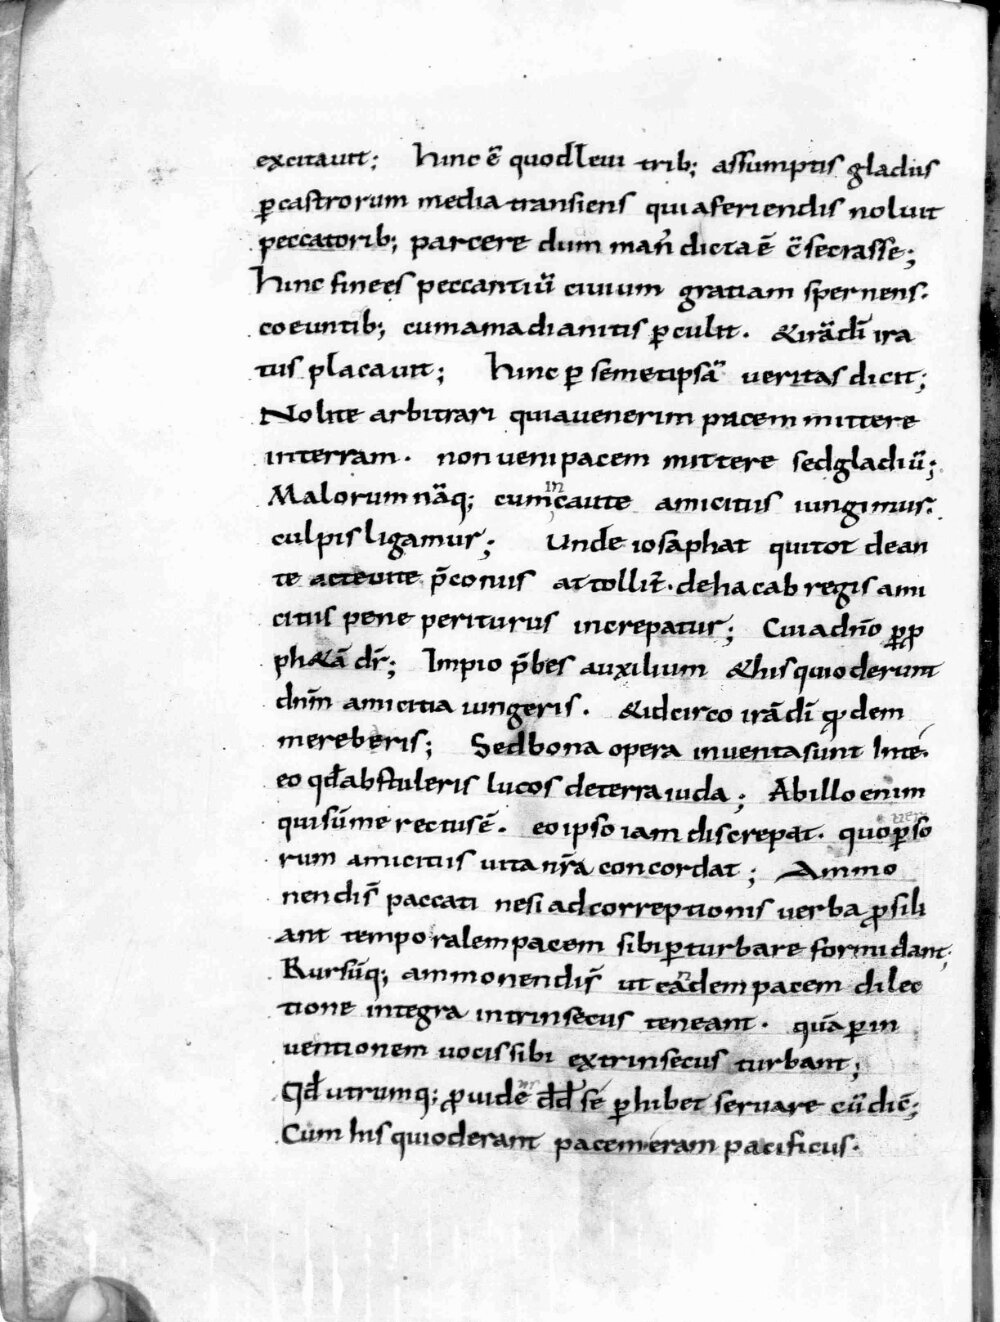 excitauit; hinc ē quodleui trib; assumptis gladiis
ꝑcastrorum media transiens quia feriendis noluit
peccatorib; parcere dum man̄ dicta ē c̄secrasse;
hinc finees peccantiū ciuium gratiam spernens.
coeuntib; cum amadianitis ꝑculit. &irādī ira
tus placauit; hinc ꝑ semetipsā ueritas dicit;
Nolite arbitrari quia uenerim pacem mittere
interram. non ueni pacem mittere sed gladiū;
Malorum nāq; cum incaute amicitiis iungimur.
culpis ligamur; Unde iosaphat qui tot dean
te acte uite p̄coniis attollit̄. dehacab regis ami
citiis pene periturus increpatur; Cui adn̄o ꝑꝓ
ph&ā dr̄; Impio p̄bes auxilium &his quioderunt
dn̄m amicitia iungeris. &idcirco irādī ꝗdem
merebaris; Sed bona opera inuenta sunt Inte.
eo qđabstuleris lucos deterra iuda; Ab illo enim
qui sūme rectus ē. eo ipso iam discrepat. quo ꝑuerso
rum amicitiis uita nr̄a concordat; Ammo
nendis̄ paccati nesi ad correptionis uerba ꝓsili
ant temporalem pacem sibi ꝑturbare formidant;
Rursūq; ammonendis̄ ut eandem pacem dilec
tione integra intrinsecus teneant. quā ꝑ in
uentionem uocis sibi extrinsecus turbant;
Qđ utrumq; ꝓuidē đđ se ꝑhibet seruare cū dic̄;
Cum his qui oderant pacem eram pacificus.